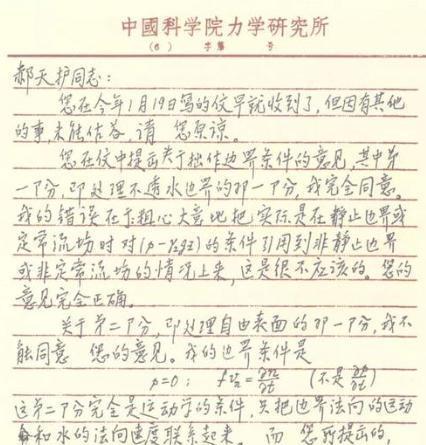 中國科学院力学研究所
( 6 ) 字第 号
郝天护同志：
您在今年1月19日写的信早就收到了，但因有其他
的事，未能作答，请 您原谅。
您在信中提出关于拙作边界条件的意见，其中第
一卩分，即处理不透水边界的那一卩分，我完全同意。
我的错误在于粗心大意地把实际是在静止边界或
定常流场时对(p-γ₀gz)的条件引用到非静止边界
或非定常流场的情况上来，这是很不应该的。您的
意见完全正确。
关于第二卩分，即处理自由表面的那一卩分，我不
能同意 您的意见。我的边界条件是
p=0；
(不是
这第二卩分完全是运动学的条件，只把边界法向的运动
和水的法向速度联系起来。而 您所提出的，